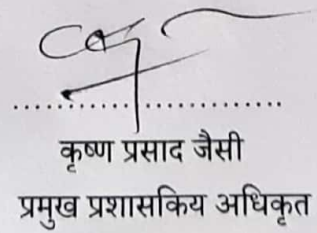 कृष्ण प्रसाद जैसी
प्रमुख प्रशासकिय अधिकृत